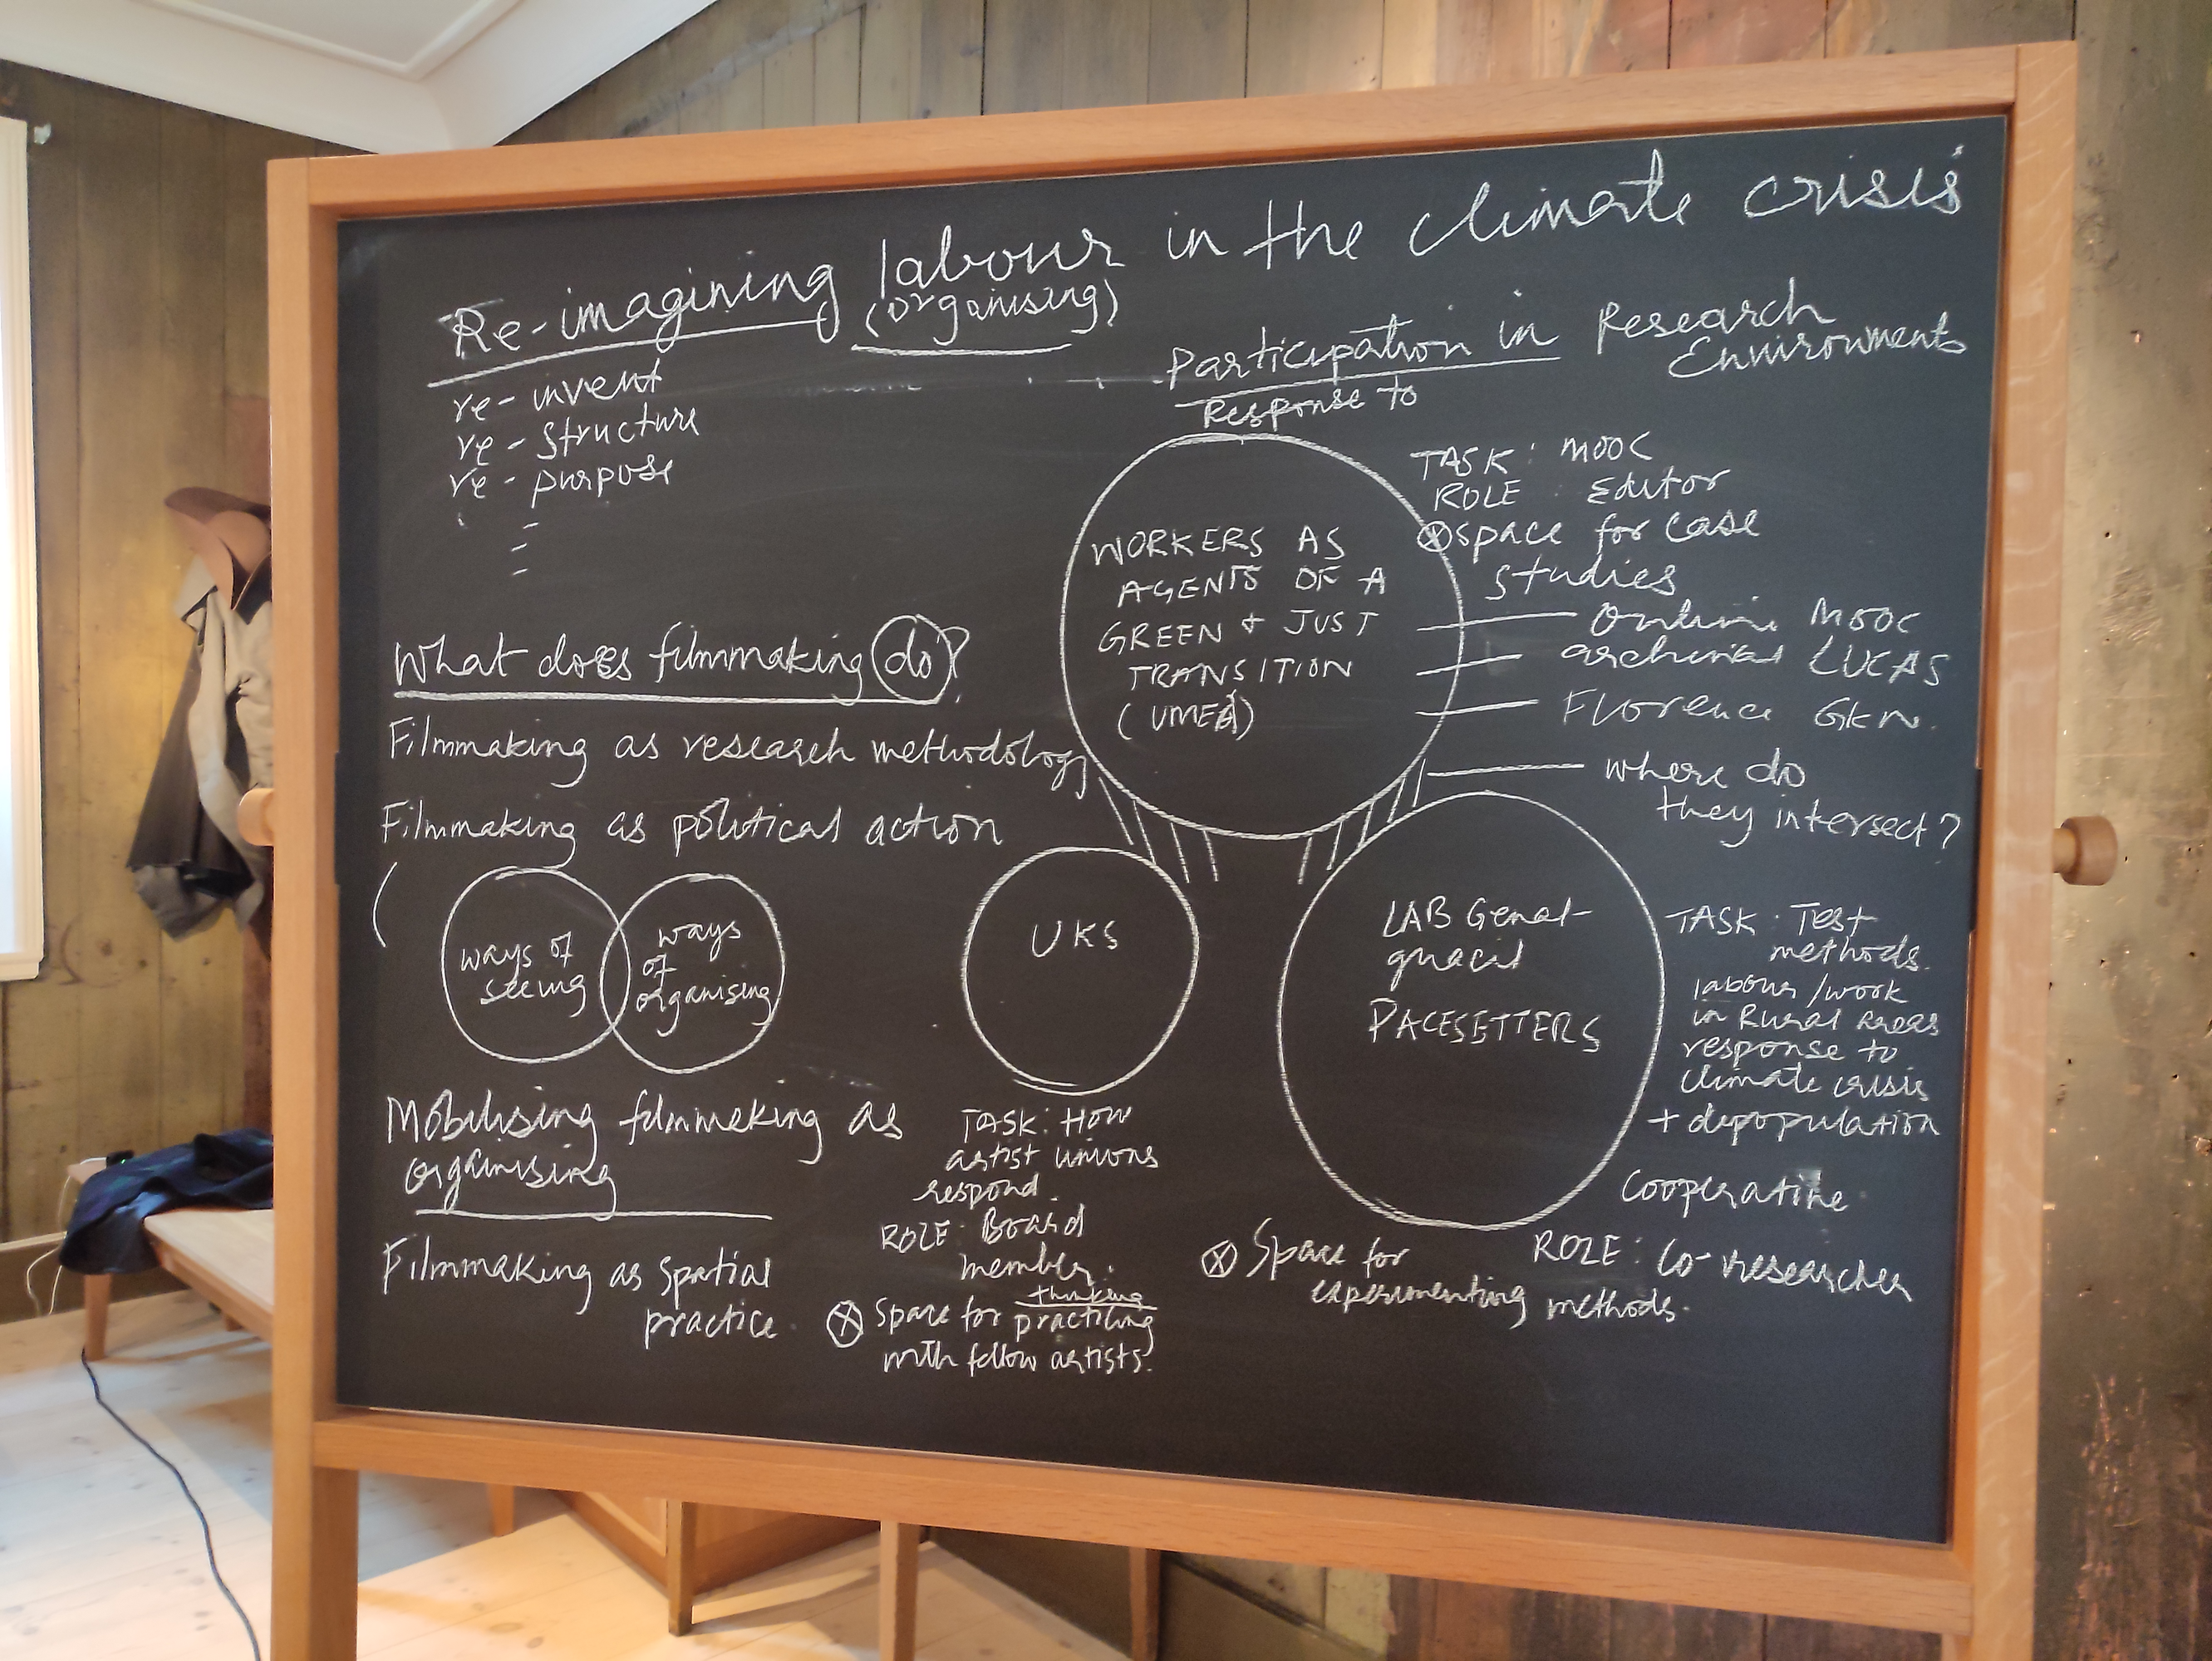 Re-imagining labour in the climate crisis
(organising)
re-invent
re-structure
re-purpose
What does filmmaking do?
Filmmaking as research methodology
Filmmaking as political action
(
ways of
seeing
ways
of
organising
Mobilising filmmaking as
organising
Filmmaking as spatial
practice.
Participation in Research
Environments
Response to
WORKERS AS
AGENTS OF A
GREEN + JUST
TRANSITION
(UMEÅ)
TASK: MOOC
ROLE: Editor
⊗ space for case
studies
Online MOOC
archival LUCAS
Florence GKN.
where do
they intersect?
UKS
TASK: How
artist unions
respond.
ROLE: Board
member.
thinking
⊗ Space for practicing
with fellow artists.
LAB Genal-
guacil
PACESETTERS
TASK: Test
methods.
labour/work
in Rural Areas
response to
climate crisis
+ depopulation
Cooperative
ROLE: Co-researcher
⊗ Space for
experimenting methods.